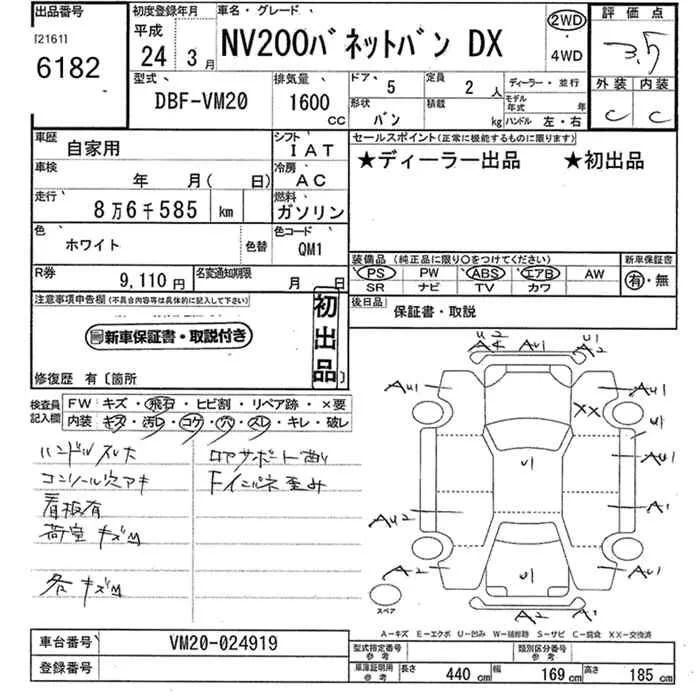 出品番号
[2161]
6182
初度登録年月
平成
24年 3月
車名・グレード
NV200バネットバン DX
2WD
・
4WD
評価点
3.5
外装 内装
C C
型式
DBF-VM20
排気量
1600 CC
ドア 5
定員 2人
形状 バン
積載 kg
ディーラー・並行
モデル年式 年
ハンドル 左・右
車歴 自家用
シフト IAT
車検 年 月( 日)
冷房 AC
走行 8万6千585 km
燃料 ガソリン
色 ホワイト 色替
色コード QM1
R券 9,110円
名変通知期限 月 日
セールスポイント(正常に機能するものに限ります)
★ディーラー出品 ★初出品
装備品(純正品に限り○をつけてください) 新車保証書
PS PW ABS エアB AW 有・無
SR ナビ TV カワ
後日品 保証書・取説
注意事項申告欄(不具合内容等は具体的に記入して下さい)
新車保証書・取説付き
初出品
修復歴 有〔箇所 〕
検査員記入欄
FW キズ・飛石・ヒビ割・リペア跡・×要
内装 キズ・汚レ・コゲ・穴・スレ・キレ・破レ
ハンドルスレ大
コンソール穴アキ
看板有
荷室キズM
各キズM
ロアサポート曲り
Fインパネ歪み
U2
A4 AU1 A2 U1
AU1 AU1
XX
U1
U1 AU1
AU2 A1
AU1 U1 AU1
A2 A1
スペア
A−キズ E−エクボ U−凹み W−補修跡 S−サビ C−腐食 XX−交換済
車台番号 VM20-024919
登録番号
型式指定番号 参考
類別区分番号 参考
車庫証明用 参考 長さ 440cm 幅 169cm 高さ 185cm